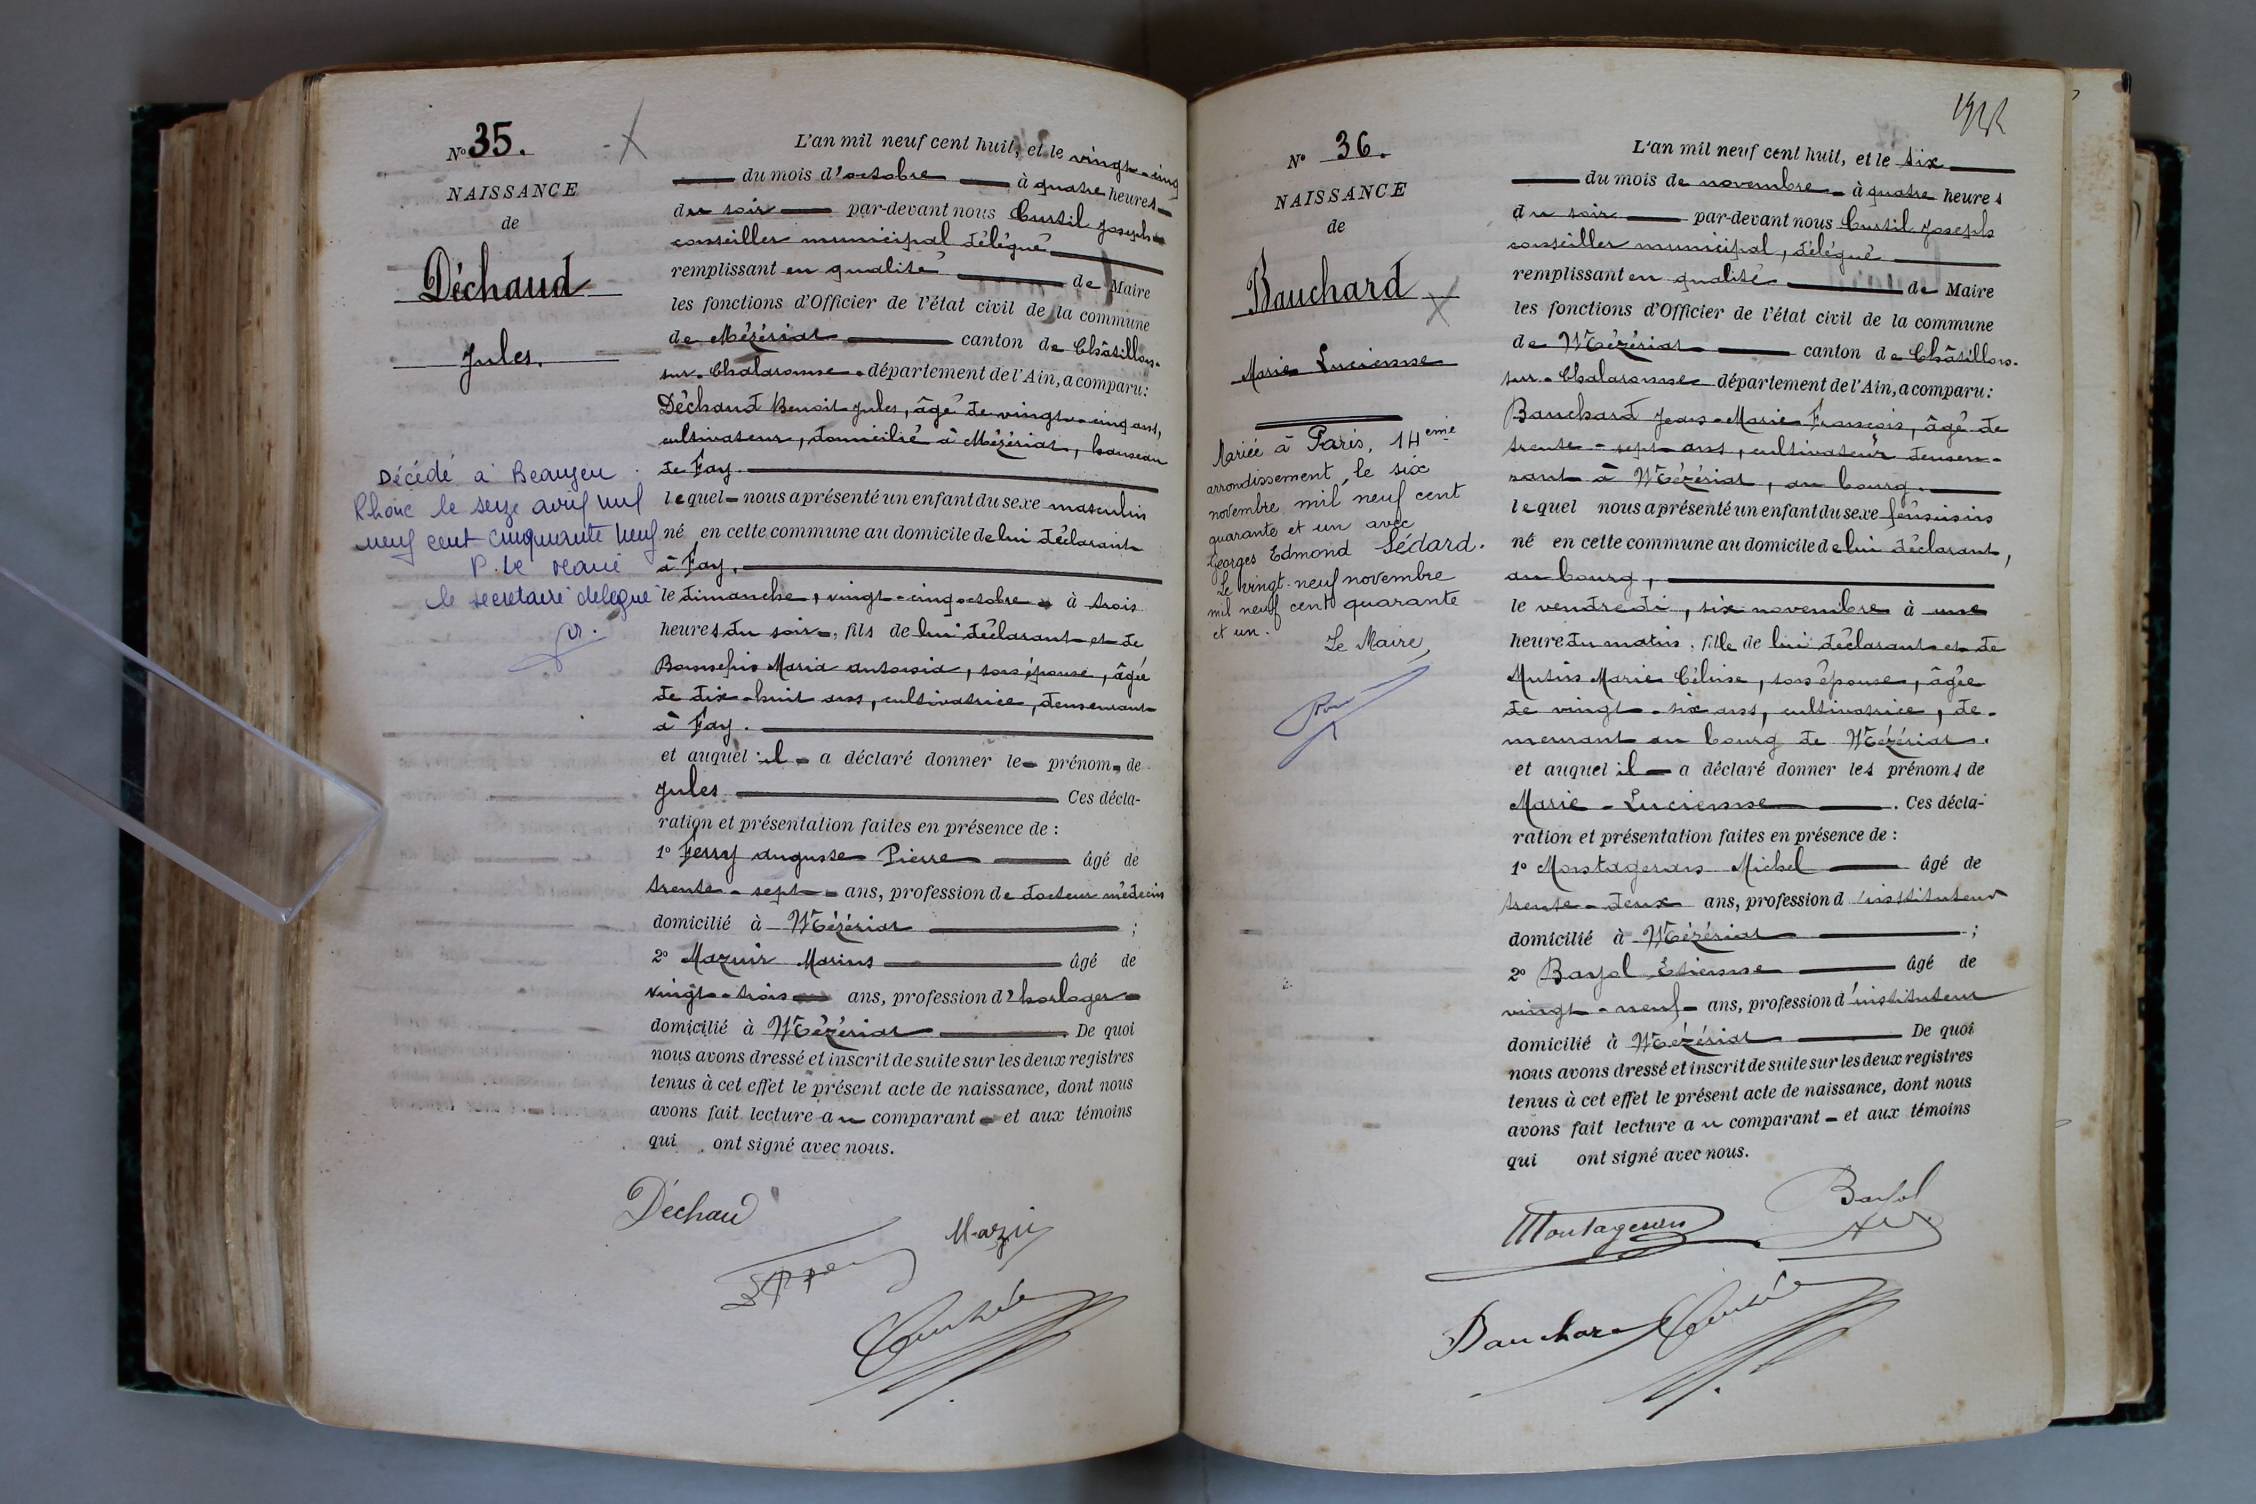 N° 35.
NAISSANCE
de
Déchaud
Jules.
Décédé à Beaujeu
Rhône le seize avril mil
neuf cent cinquante neuf
P. Le Maire
le secretaire délégué
L'an mil neuf cent huit, et le vingt-cinq
du mois d'octobre à quatre heures
du soir par-devant nous Curtil Joseph
conseiller municipal délégué
remplissant en qualité de Maire
les fonctions d'Officier de l'état civil de la commune
de Mézériat canton de Châtillon-
sur-Chalaronne département de l'Ain, a comparu:
Déchaud Benoit Jules, âgé de vingt-cinq ans,
cultivateur, domicilié à Mézériat, hameau
de Fay.
lequel nous a présenté un enfant du sexe masculin
né en cette commune au domicile de lui déclarant
à Fay,
le dimanche, vingt-cinq octobre à trois
heures du soir, fils de lui déclarant et de
Maria Antonia, son épouse, âgée
de dix-huit ans, cultivatrice, demeurant
à Fay.
et auquel il a déclaré donner le prénom de
Jules Ces décla-
ration et présentation faites en présence de :
1° Ferry Auguste Pierre âgé de
trente-sept ans, profession de docteur médecin
domicilié à Mézériat ;
2° Mazuir Marius âgé de
vingt-trois ans, profession d'horloger
domicilié à Mézériat. De quoi
nous avons dressé et inscrit de suite sur les deux registres
tenus à cet effet le présent acte de naissance, dont nous
avons fait lecture au comparant et aux témoins
qui ont signé avec nous.
Déchaud
Mazui
N° 36.
NAISSANCE
de
Bauchard
Marie Lucienne
Mariée à Paris, 14eme
arrondissement, le six
novembre mil neuf cent
quarante et un avec
Georges Edmond Sédard.
Le vingt-neuf novembre
mil neuf cent quarante
et un.
Le Maire,
L'an mil neuf cent huit, et le six
du mois de novembre à quatre heures
du soir par-devant nous Curtil Joseph
conseiller municipal, délégué
remplissant en qualité de Maire
les fonctions d'Officier de l'état civil de la commune
de Mézériat canton de Châtillon-
sur-Chalaronne département de l'Ain, a comparu:
Bauchard Jean-Marie François, âgé de
trente-sept ans, cultivateur demeu-
rant à Mézériat, au bourg.
lequel nous a présenté un enfant du sexe féminin
né en cette commune au domicile de lui déclarant,
au bourg,
le vendredi, six novembre à une
heure du matin, fille de lui déclarant et de
Mutin Marie Céline, son épouse, âgée
de vingt-six ans, cultivatrice, de-
meurant au bourg de Mézériat.
et auquel il a déclaré donner les prénoms de
Marie-Lucienne. Ces décla-
ration et présentation faites en présence de :
1° Montagnon Michel âgé de
trente-deux ans, profession d'instituteur
domicilié à Mézériat ;
2° Bayol Étienne âgé de
vingt-neuf ans, profession d'instituteur
domicilié à Mézériat De quoi
nous avons dressé et inscrit de suite sur les deux registres
tenus à cet effet le présent acte de naissance, dont nous
avons fait lecture au comparant et aux témoins
qui ont signé avec nous.
Bayol
Bauchard